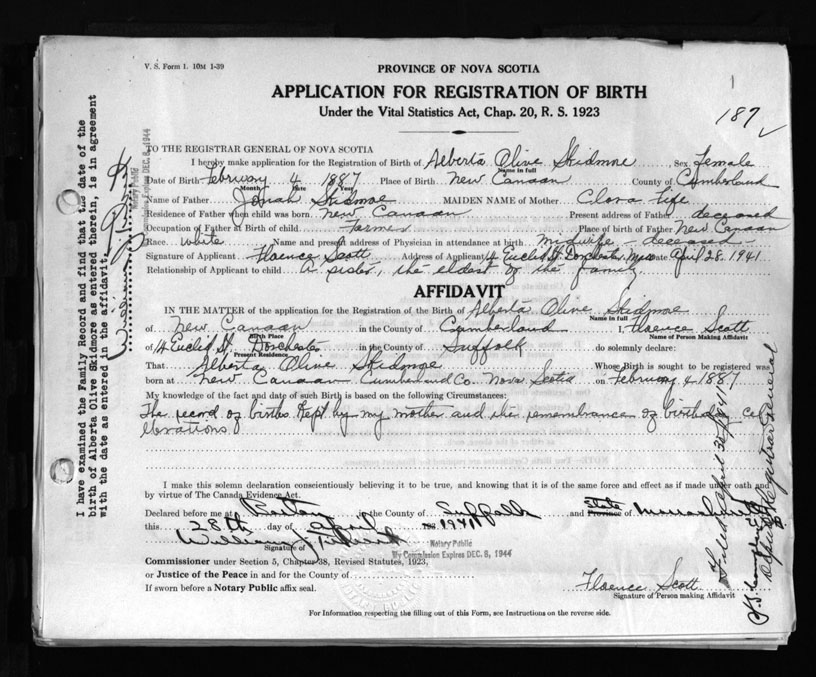 V. S. Form 1. 10M 1-39
PROVINCE OF NOVA SCOTIA
APPLICATION FOR REGISTRATION OF BIRTH
Under the Vital Statistics Act, Chap. 20, R. S. 1923
187
TO THE REGISTRAR GENERAL OF NOVA SCOTIA
I hereby make application for the Registration of Birth of Alberta Olive Skidmore Sex Female
Name in full
Date of Birth February 4 1887 Place of Birth New Canaan County of Cumberland
Month Date Year
Name of Father Josiah Skidmore MAIDEN NAME of Mother Clora Fife
Residence of Father when child was born New Canaan Present address of Father deceased
Occupation of Father at Birth of child Farmer Place of birth of Father New Canaan
Race white Name and present address of Physician in attendance at birth midwife - deceased -
Signature of Applicant Florence Scott Address of Applicant 14 Euclid St. Dorchester, Mass Date April 28. 1941
Relationship of Applicant to child A sister, the eldest of the family
AFFIDAVIT
IN THE MATTER of the application for the Registration of the Birth of Alberta Olive Skidmore
Name in full
of New Canaan in the County of Cumberland I, Florence Scott
Birth Place Name of Person Making Affidavit
of 14 Euclid St. Dorchester in the County of Suffolk do solemnly declare:
Present Residence
That Alberta Olive Skidmore Whose Birth is sought to be registered was
born at New Canaan Cumberland Co. Nova Scotia on February 4 1887
My knowledge of the fact and date of such Birth is based on the following Circumstances:
The record of births kept by my mother and the remembrance of birthday cel
ebrations
I make this solemn declaration conscientiously believing it to be true, and knowing that it is of the same force and effect as if made under oath and
by virtue of The Canada Evidence Act.
Declared before me at Boston in the County of Suffolk and State Province of Massachusetts
this 28th day of April 193 1941
William J.
Signature of
Notary Public
My Commission Expires DEC. 8, 1944
Commissioner under Section 5, Chapter 38, Revised Statutes, 1923,
or Justice of the Peace in and for the County of
If sworn before a Notary Public affix seal.
Florence Scott
Signature of Person making Affidavit
For Information respecting the filling out of this Form, see Instructions on the reverse side.
I have examined the Family Record and find that the date of the
birth of Alberta Olive Skidmore as entered therein, is in agreement
with the date as entered in the affidavit.
Notary Public
Expires DEC. 8, 1944
Filed April 30 1941
Deputy Registrar General